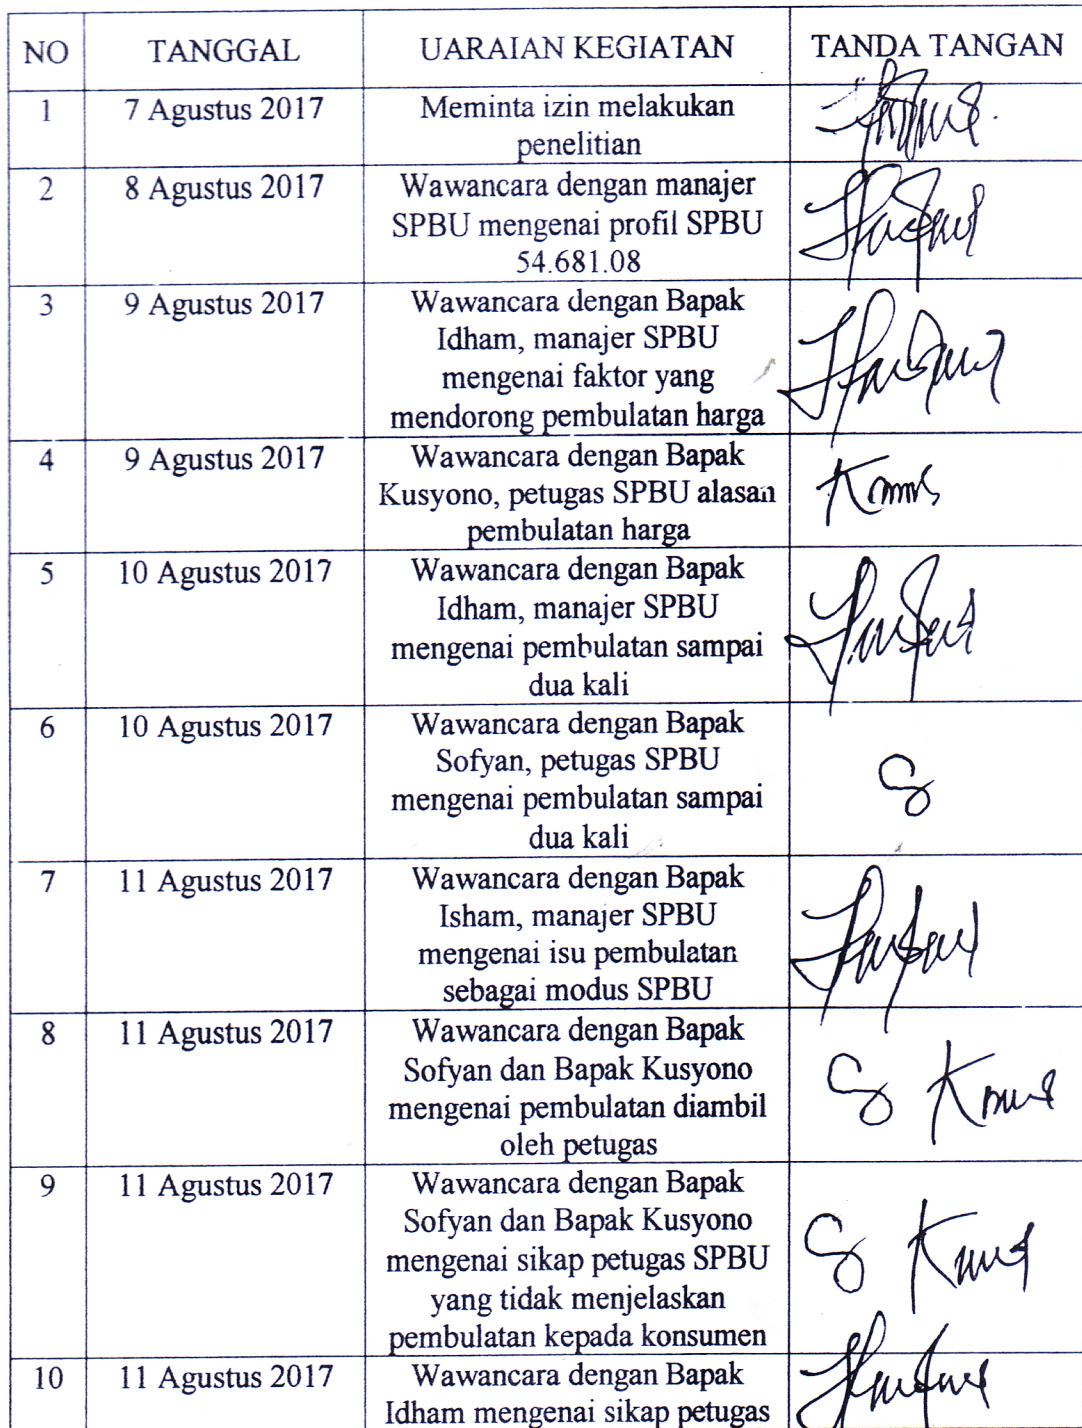 NO TANGGAL UARAIAN KEGIATAN TANDA TANGAN
1 7 Agustus 2017 Meminta izin melakukan
penelitian
2 8 Agustus 2017 Wawancara dengan manajer
SPBU mengenai profil SPBU
54.681.08
3 9 Agustus 2017 Wawancara dengan Bapak
Idham, manajer SPBU
mengenai faktor yang
mendorong pembulatan harga
4 9 Agustus 2017 Wawancara dengan Bapak
Kusyono, petugas SPBU alasan
pembulatan harga
5 10 Agustus 2017 Wawancara dengan Bapak
Idham, manajer SPBU
mengenai pembulatan sampai
dua kali
6 10 Agustus 2017 Wawancara dengan Bapak
Sofyan, petugas SPBU
mengenai pembulatan sampai
dua kali
7 11 Agustus 2017 Wawancara dengan Bapak
Isham, manajer SPBU
mengenai isu pembulatan
sebagai modus SPBU
8 11 Agustus 2017 Wawancara dengan Bapak
Sofyan dan Bapak Kusyono
mengenai pembulatan diambil
oleh petugas
9 11 Agustus 2017 Wawancara dengan Bapak
Sofyan dan Bapak Kusyono
mengenai sikap petugas SPBU
yang tidak menjelaskan
pembulatan kepada konsumen
10 11 Agustus 2017 Wawancara dengan Bapak
Idham mengenai sikap petugas